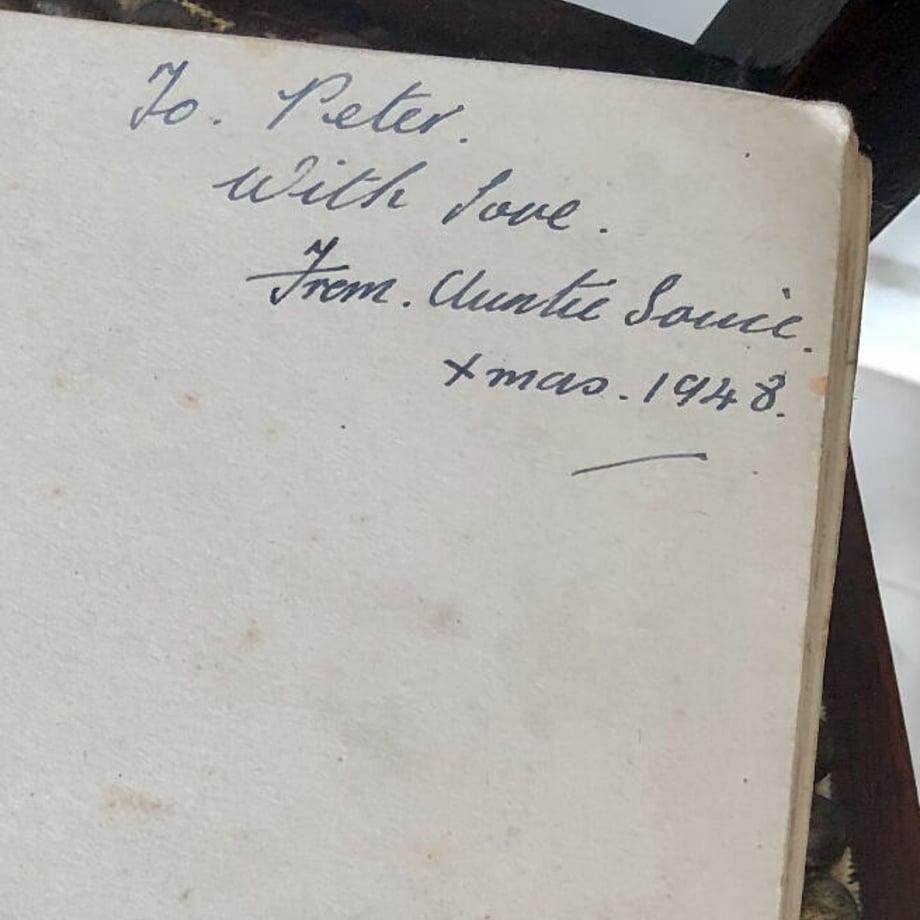 To. Peter.
With Love.
From. Auntie Louie.
Xmas. 1948.